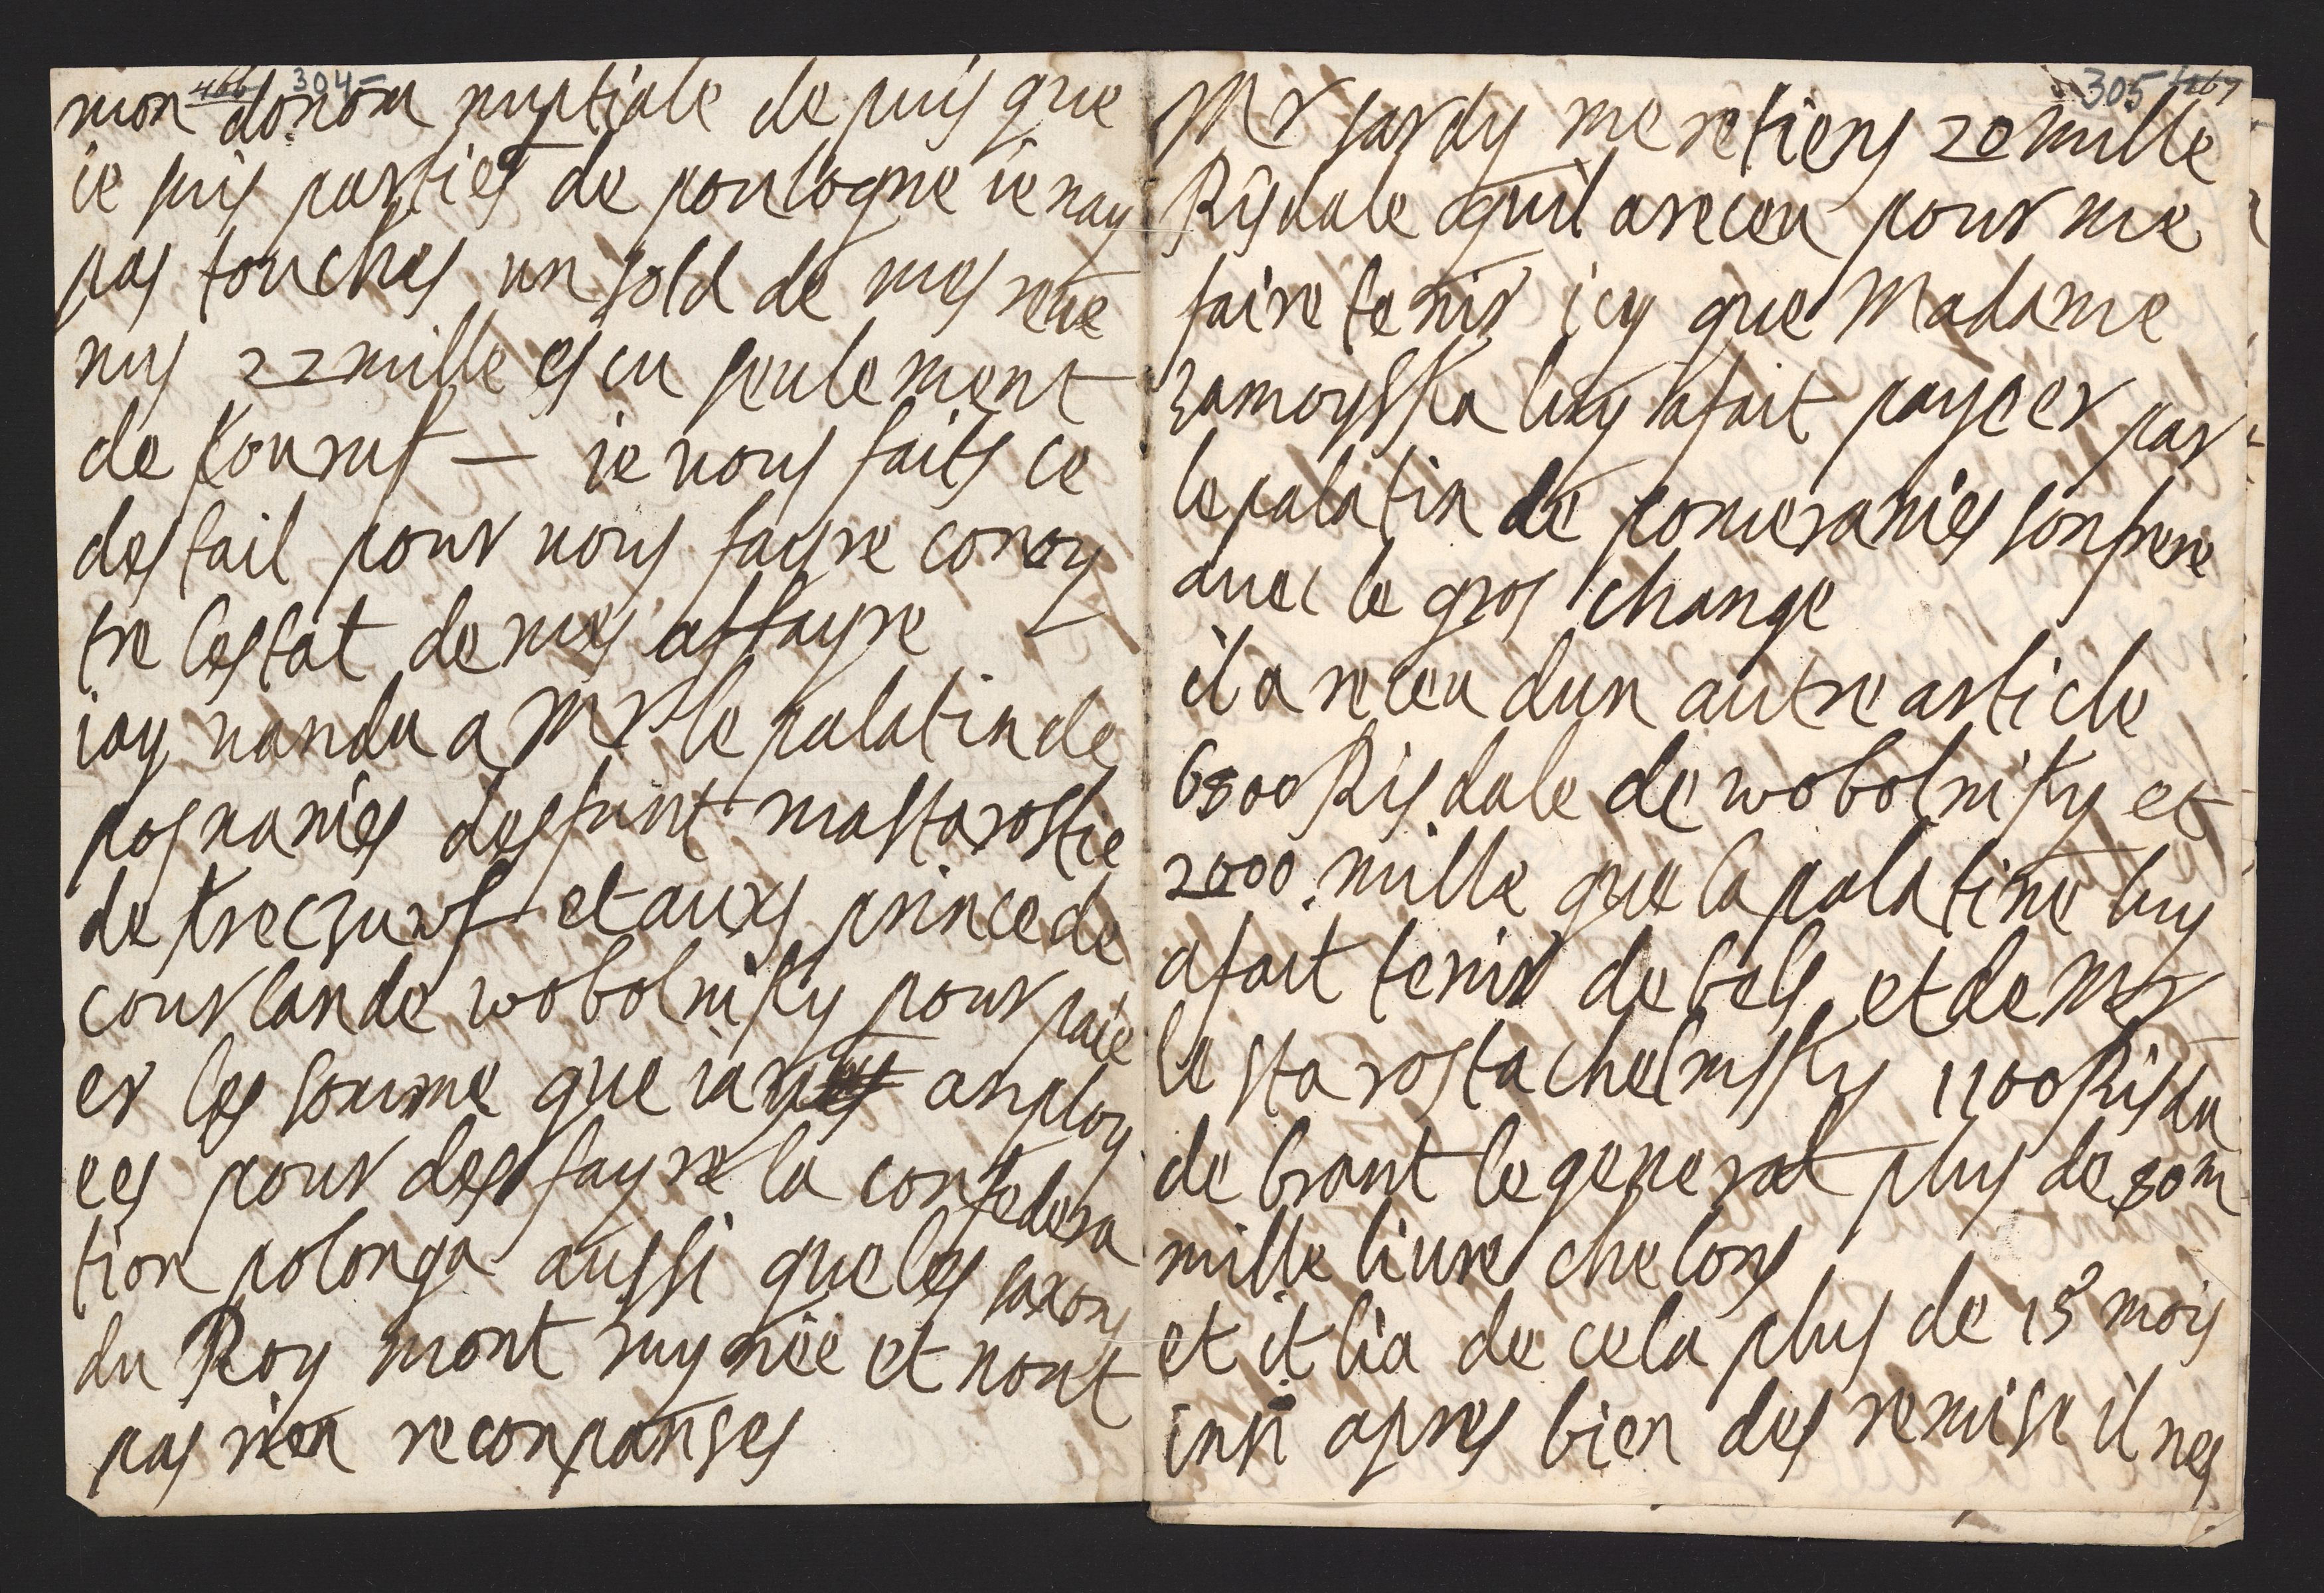 466 304
mon donom nuptiale de puis que
ie suis parties de poulogne ie nay
pas touches un sold de mes reve
nus 22 mille escu seulement
de Koursus — ie vous faits ce
destail pour vous fayre conoy
tre lestat de mes affayre
iay vandu a Mr le palatin de
posnanies desfunt ma starostie
de et aux prince de
courlande wobolnisky pour paie
er les somme que iay anploy
ees pour desfayre la confedera
tion polonga aussi que les saxons
du Roy mont ruynée et nont
pas rien reconpanses
305 467
Mr sardy me retiens 20 mille
Risdale quil a receu pour me
faire tenir icy que Madame
zamoyska luy a fait payeer par
le palatin de pomeranies son frere
avec le gros change
il a receu dun autre article
6800 Risdale de wobolnisky et
2000 mille que la palatine luy
a fait tenir de bels et de Mr
le starosta chelmsky 1100 Risda
de brant le general plus de
mille livre chelons
et it lia de cela plus de 15 mois
insi apres bien des remise il nes